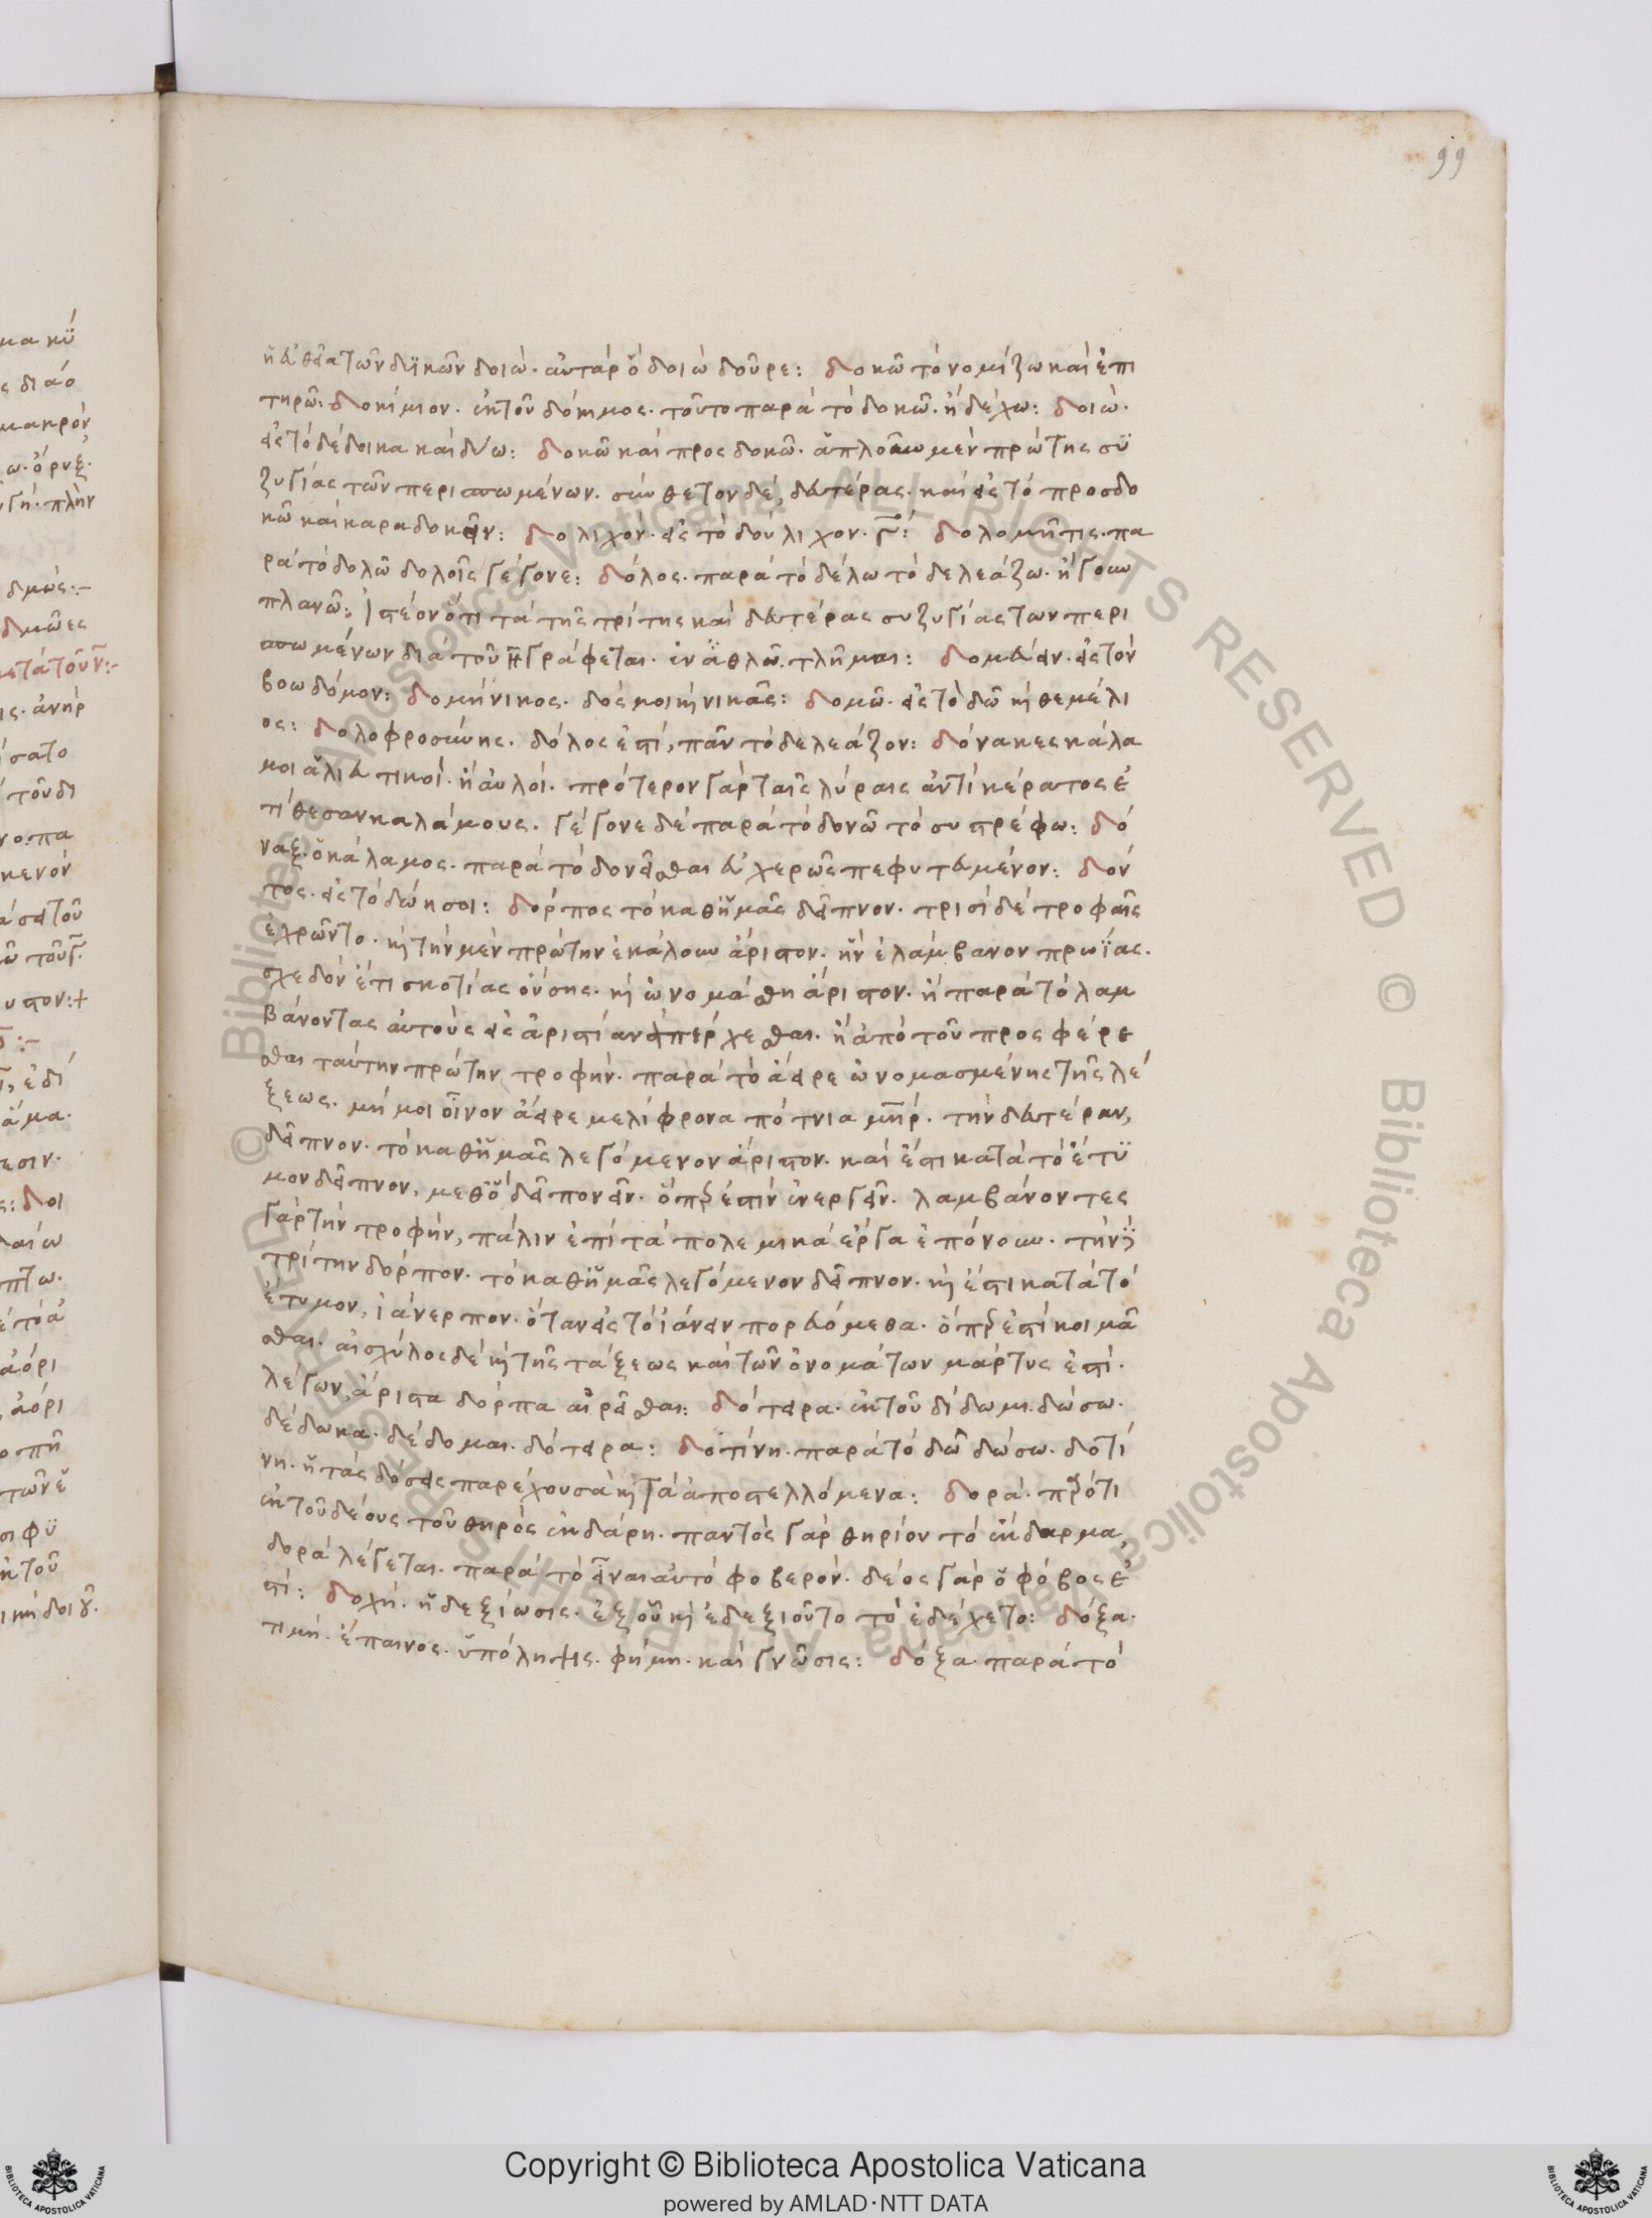 99
ἡ εὐθεῖα τῶν δυϊκῶν δοιώ· αὐτὰρ ὃ δοιὼ δοῦρε: δοκῶ τὸ νομίζω καὶ ἐπι
τηρῶ: δοκίμιον· ἐκ τοῦ δόκιμος· τοῦτο παρὰ τὸ δοκῶ· ἢ δέχω: δοιώ·
εἰς τὸ δέδοικα καὶ δύω: δοκῶ καὶ προσδοκῶ· ἁπλοῦν μὲν πρώτης συ
ζυγίας τῶν περισπωμένων· σύνθετον δὲ, δευτέρας· καὶ εἰς τὸ προσδο
κῶ καὶ καραδοκεῖν: δολιχόν· εἰς τὸ δούλιχον· δολομῆτις· πα
ρὰ τὸ δολῶ δολοῖς γέγονε: δόλος· παρὰ τὸ δέλω τὸ δελεάζω· ἤγουν
πλανῶ: ἰστέον ὅτι τὰ τῆς τρίτης καὶ δευτέρας συζυγίας των περι
σπωμένων διὰ τοῦ η γράφεται· ἀθλῶ· τλῆμαι: δομεύειν· εἰς τὸν
βοωδόμον: δομήνικος· δός μοι κὴ νικᾶς: δομῶ· εἰς τὸ δῶ κὴ θεμέλι
ος: δολοφροσύνης· δόλος ἐστὶ, πᾶν τὸ δελεάζον: δόνακες κάλα
μοι ἁλιευτικοί· ἢ αὐλοί· πρότερον γὰρ ταῖς λύραις ἀντὶ κέρατος ἐ
τίθεσαν καλάμους· γέγονε δὲ παρὰ τὸ δονῶ τὸ συστρέφω: δό
ναξ· ὁ κάλαμος· παρὰ τὸ δονεῖσθαι εὐχερῶς πεφυτευμένον: δον
τος· εἰς τὸ δώησοι: δόρπος τὸ καθ' ἡμᾶς δεῖπνον· τρισὶ δὲ τροφαῖς
ἐχρῶντο· κὴ τὴν μὲν πρώτην ἐκάλουν ἄριστον· ἣν ἐλάμβανον πρωΐας·
σχεδὸν ἔτι σκοτίας οὔσης· κὴ ὠνομάσθη ἄριστον· ἢ παρὰ τὸ λαμ
βάνοντας αὐτοὺς εἰς ἀριστίαν ἀπέρχεσθαι· ἢ ἀπὸ τοῦ προσφέρε
σθαι ταύτην πρώτην τροφήν· παρὰ τὸ ἄειρε ὠνομασμένης τῆς λέ
ξεως· μή μοι οἶνον ἄειρε μελίφρονα πότνια μῆηρ· τὴν δευτέραν,
δεῖπνον· τὸ καθ' ἡμᾶς λεγόμενον ἄριστον· καὶ ἔστι κατὰ τὸ ἔτυ
μον δεῖπνον, μεθ' ὃ δεῖ πονεῖν· ὅπερ ἐστὶν ἐνεργεῖν· λαμβάνοντες
γὰρ τὴν τροφὴν, πάλιν ἐπὶ τὰ πολεμικὰ ἔργα ἐπόνουν· τὴν δὲ
τρίτην δόρπον· τὸ καθ' ἡμᾶς λεγόμενον δεῖπνον· κὴ ἔστι κατὰ τὸ
ἔτυμον, ἰάνερπον· ὅταν εἰς τὸ ἰάνειν πορευόμεθα· ὅπερ ἐστὶ κοιμᾶ
σθαι· αἰσχύλος δὲ κὴ τῆς τάξεως καὶ τῶν ὀνομάτων μάρτυς ἐστί·
λέγων, ἄριστα δόρπα αἱρεῖσθαι: δότειρα· ἐκ τοῦ δίδωμι δώσω·
δέδωκα· δέδομαι· δότειρα: δοτίνη· παρὰ τὸ δῶ δώσω· δοτί
νη· ἡ τὰς δόσεις παρέχουσα κὴ τὰ ἀποστελλόμενα: δορά· παρ' ὅτι
ἐκ τοῦ δέους τοῦ θηρὸς ἐκδάρη· παντὸς γὰρ θηρίου τὸ ἔκδαρμα,
δορὰ λέγεται· παρὰ τὸ εἶναι αὐτὸ φοβερόν· δέος γὰρ ὁ φόβος ἐ
στί: δοχή· ἡ δεξίωσις· ἐξ οὗ κὴ ἐδεξιοῦτο τὸ ἐδέχετο: δόξα·
τιμή· ἔπαινος· ὑπόληψις· φήμη· καὶ γνῶσις: δόξα· παρὰ τὸ
Copyright © Biblioteca Apostolica Vaticana
powered by AMLAD·NTT DATA